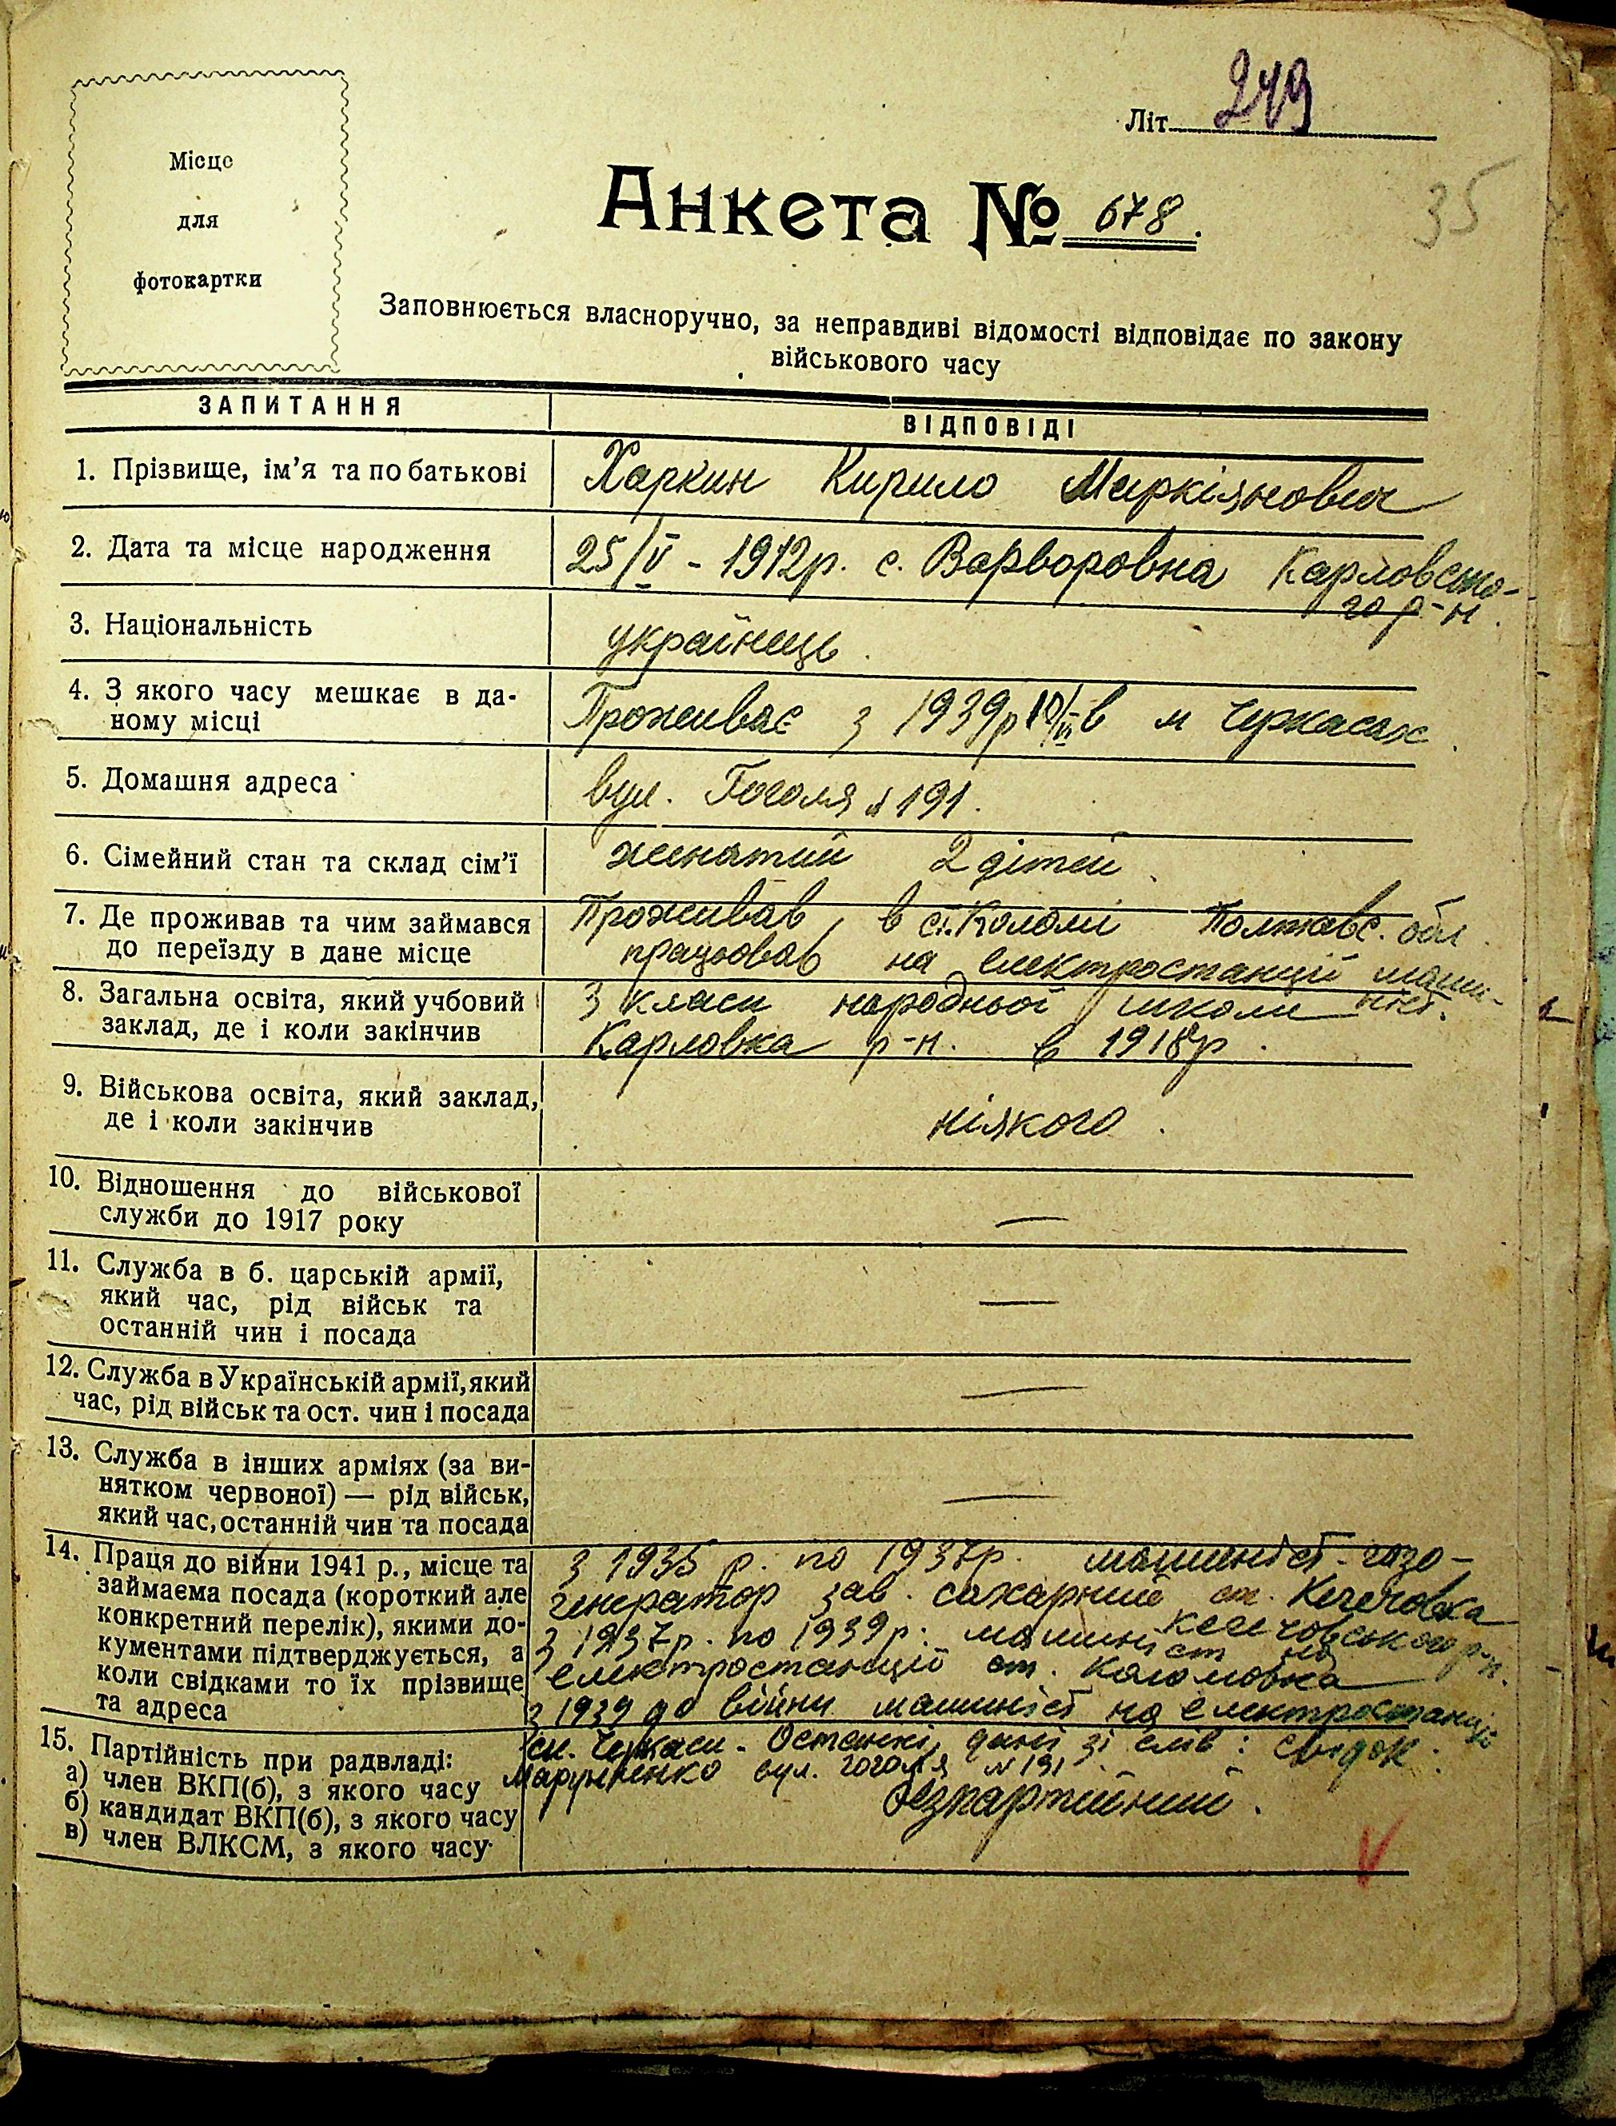 Місце
для
фотокартки
Літ. 249
35
Анкета № 678.
Заповнюється власноручно, за неправдиві відомості відповідає по закону
військового часу
ЗАПИТАННЯ
ВІДПОВІДІ
1. Прізвище, ім'я та по батькові
Харкин Кирило Маркіянович
2. Дата та місце народження
25/V - 1912р. с. Варворовна Карловсько-
го р-н.
3. Національність
українець.
4. З якого часу мешкає в да-
ному місці
Проживає з 1939р 10/VI в м Черкасах.
5. Домашня адреса
вул. Гоголя № 191.
6. Сімейний стан та склад сім'ї
женатий 2 дітей.
7. Де проживав та чим займався
до переїзду в дане місце
Проживав в ст. Коломі Полтавс. обл.
працював на електростанції маши-
ніст.
8. Загальна освіта, який учбовий
заклад, де і коли закінчив
3 класи народньої школи
Карловка р-н. в 1918р.
9. Військова освіта, який заклад,
де і коли закінчив
ніякого.
10. Відношення до військової
служби до 1917 року
—
11. Служба в б. царській армії,
який час, рід військ та
останній чин і посада
—
12. Служба в Українській армії, який
час, рід військ та ост. чин і посада
—
13. Служба в інших арміях (за ви-
нятком червоної) — рід військ,
який час, останній чин та посада
—
14. Праця до війни 1941 р., місце та
займаєма посада (короткий але
конкретний перелік), якими до-
кументами підтверджується, а
коли свідками то їх прізвище
та адреса
З 1935 р. по 1937р. машиніст-газо-
генератор зав. сахарний ст. Кегечовка
Кегечовського р-н.
З 1937р. по 1939р. машиніст на
електростанції ст. Коломовка
з 1939 до війни машиніст на електростанції
м. Черкаси. Останні дані зі слів: свідок.
Марченко вул. Гоголя № 191.
15. Партійність при радвладі:
а) член ВКП(б), з якого часу
б) кандидат ВКП(б), з якого часу
в) член ВЛКСМ, з якого часу
безпартийний.